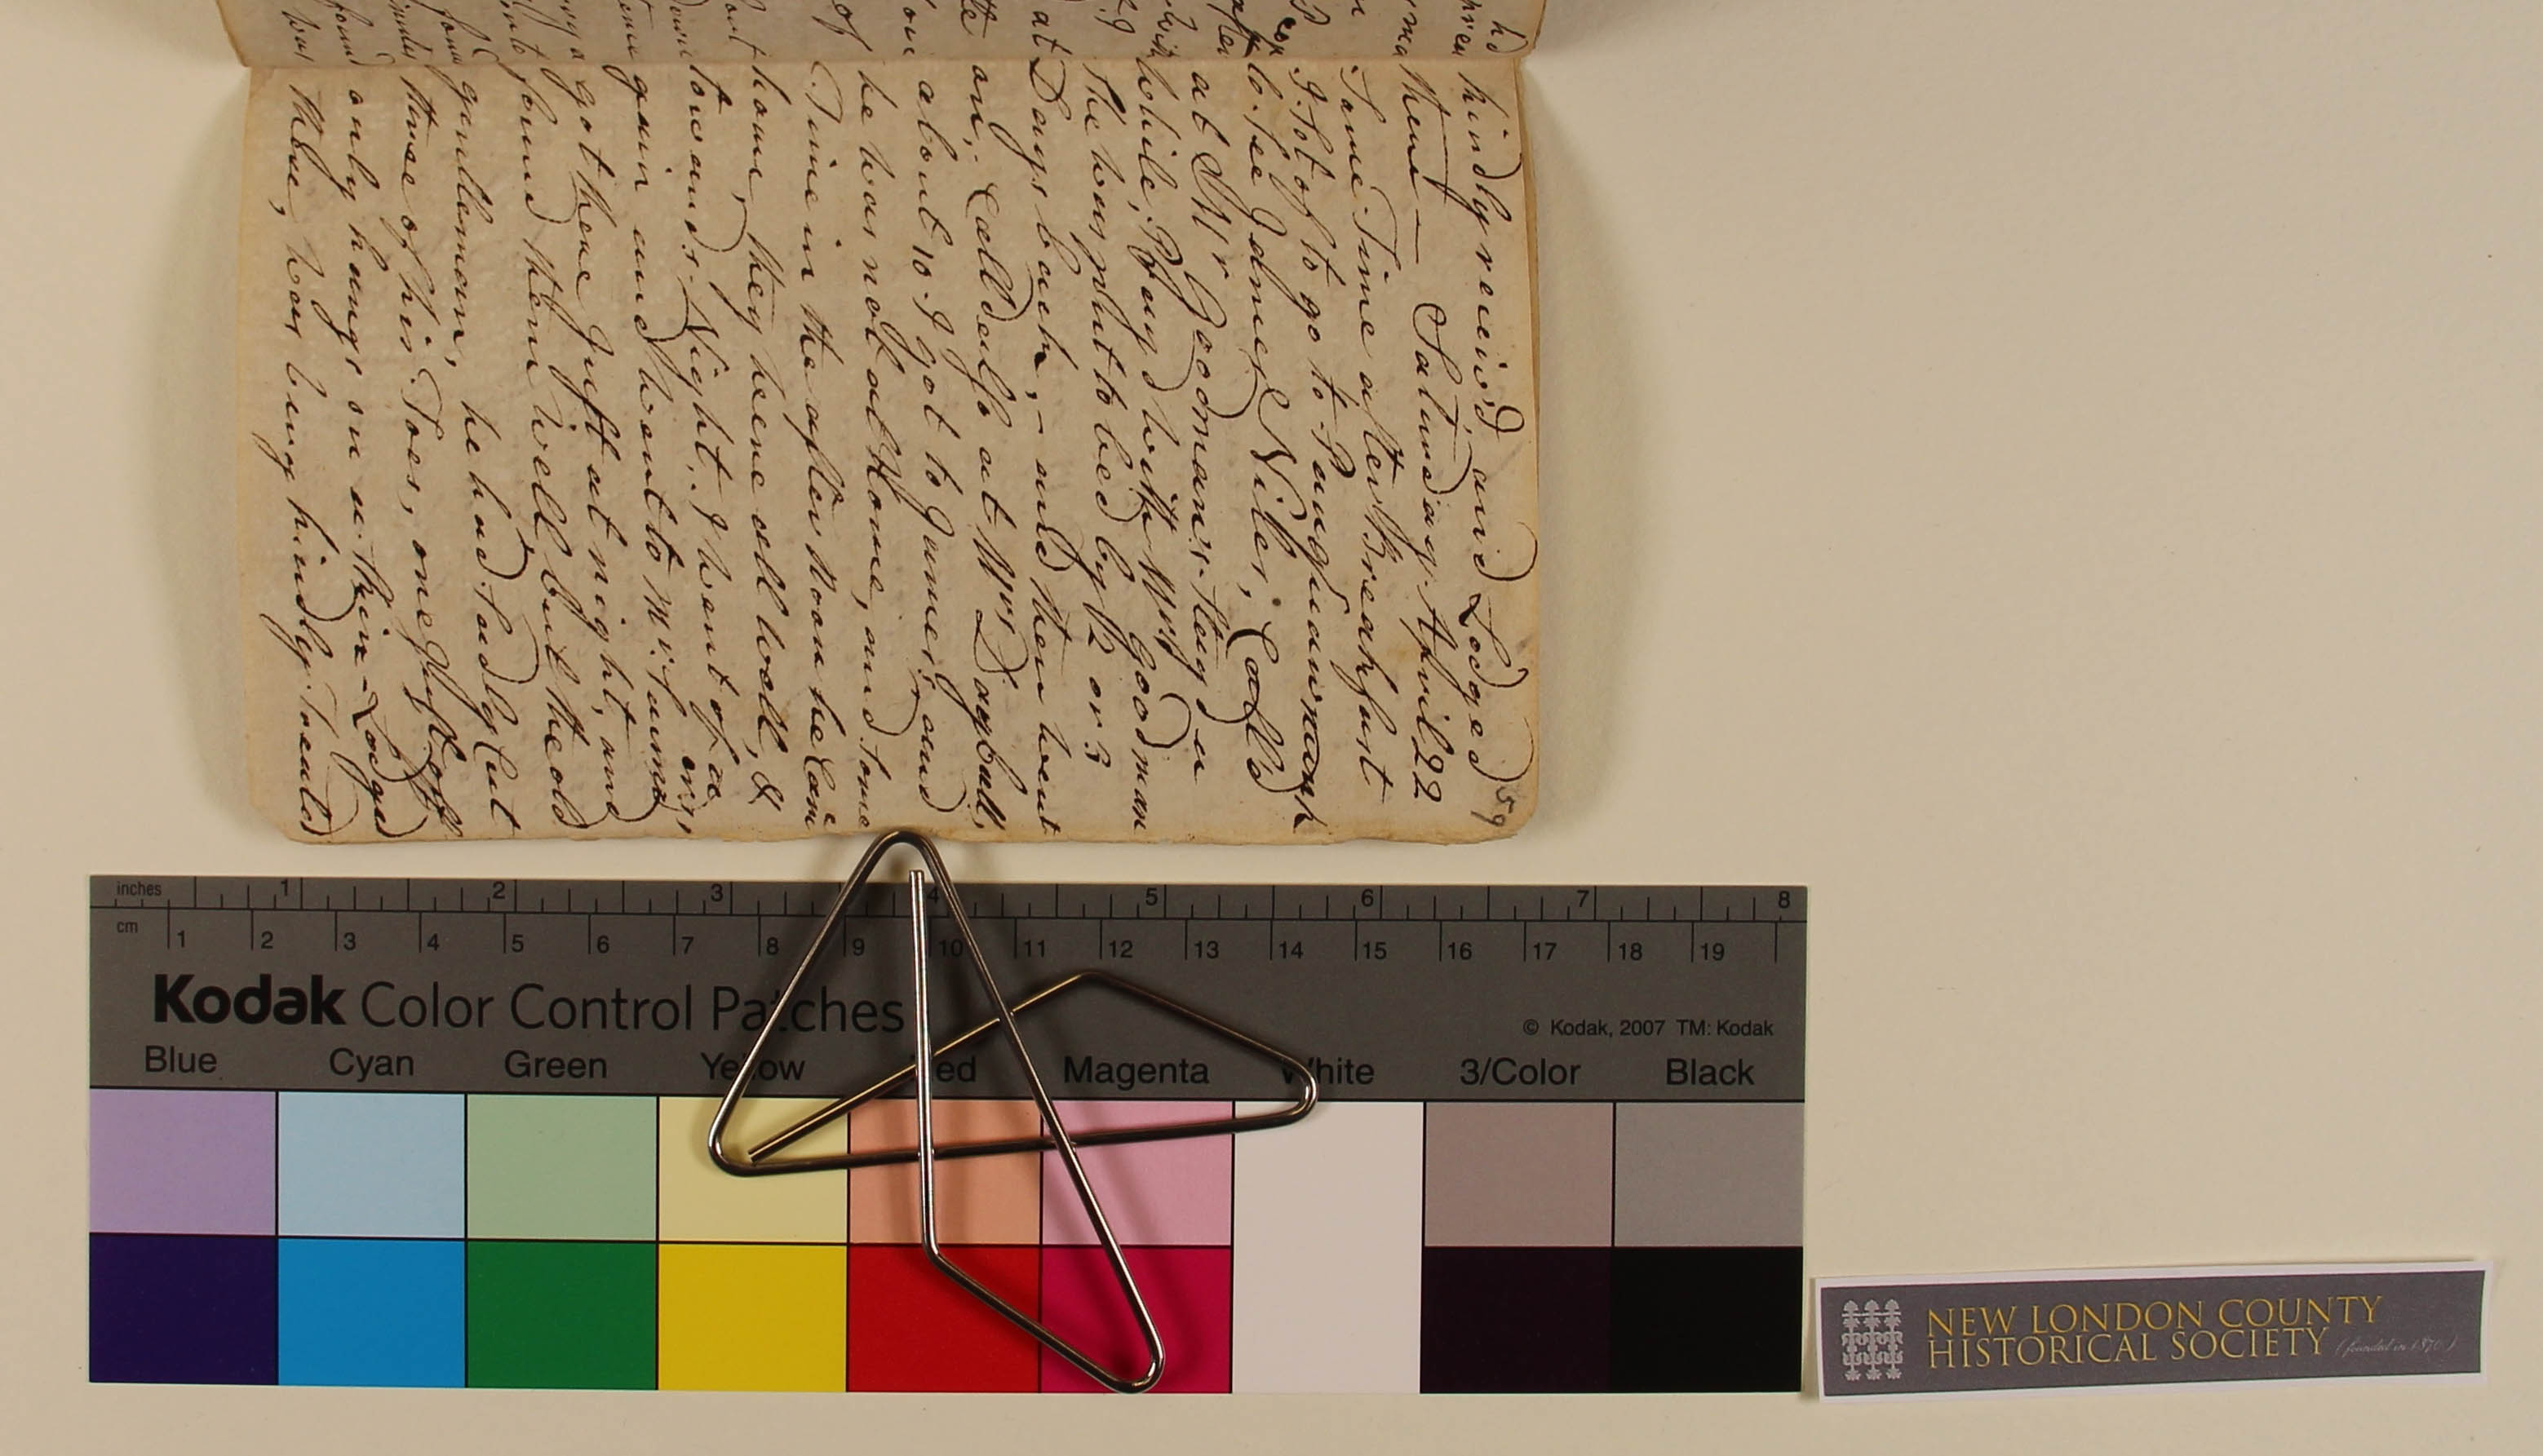 59
kindly receiv'd, and Lodged
there — Saturday. April 22
Some Time after Breakfast
I. Sot of to go to PaugSuaunnuck
to. See Idmes Niles, Calld
at Mr Goodmans. Stayd a
while, Prayd with Mrs Goodman
She was put to bed by 12 or 3
Days back, – and then went
on, – Calld also at Mrs Dagball,
about 10. I got to James's, and
he was not at Home, and Some
Time in the after Noon he Came
home, they were all well, &
towards. Night. I went of a
gain and went to Mr. Sammes
got there Just at night, and
found them well, but the old
gentleman, he had. Sadly Cut
three of his. Toes, one Just
only hangs on a. Skin – Lodged
there, was being kindly. Treated
inches 1 2 3 4 5 6 7 8
cm 1 2 3 4 5 6 7 8 9 10 11 12 13 14 15 16 17 18 19
Kodak Color Control Patches
© Kodak, 2007 TM: Kodak
Blue Cyan Green Yellow Red Magenta White 3/Color Black
NEW LONDON COUNTY
HISTORICAL SOCIETY (founded in 1870)